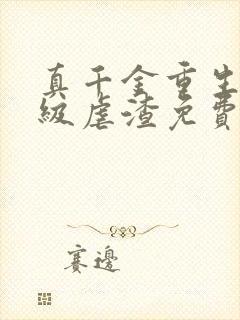 真千金重生
級虐渣免費
賽邊